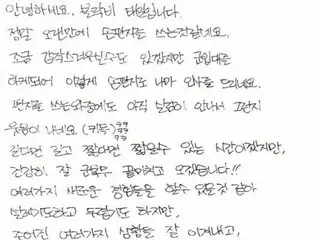 안녕하세요. 블락비 태일입니다.
정말 오랜만에 손편지를 쓰는것같네요.
조금 갑작스러우실수도 있겠지만 군입대를
하게되어 이렇게 손편지로 나마 인사를 드리네요.
편지를 쓰는와중에도 아직 실감이 안나서 그런지
웃음이 나네요 (키득)ㅋㅋㅋㅋ
길다면 길고 짧다면 짧을수 있는 시간이겠지만,
건강히 잘 군복무 끝마치고 오겠습니다!!
여러가지 새로운 경험들을 할수 있을것 같아
설레기도하고 두렵기도 하지만,
주어진 여러가지 상황들 잘 이겨내고,